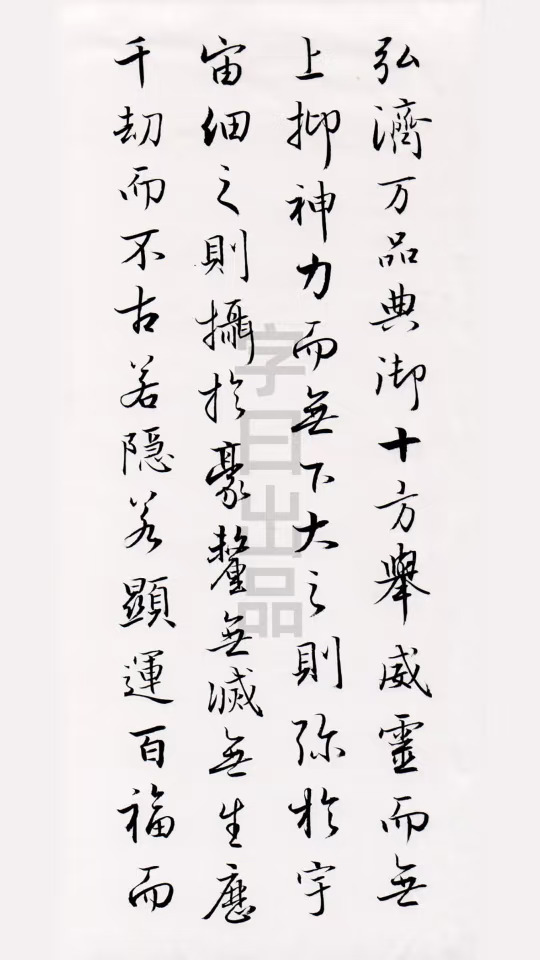 弘濟万品典御十方舉威靈而無
上抑神力而無下大之則弥於宇
宙細之則攝於豪釐無滅無生歷
千劫而不古若隐若顯運百福而
字曰出品